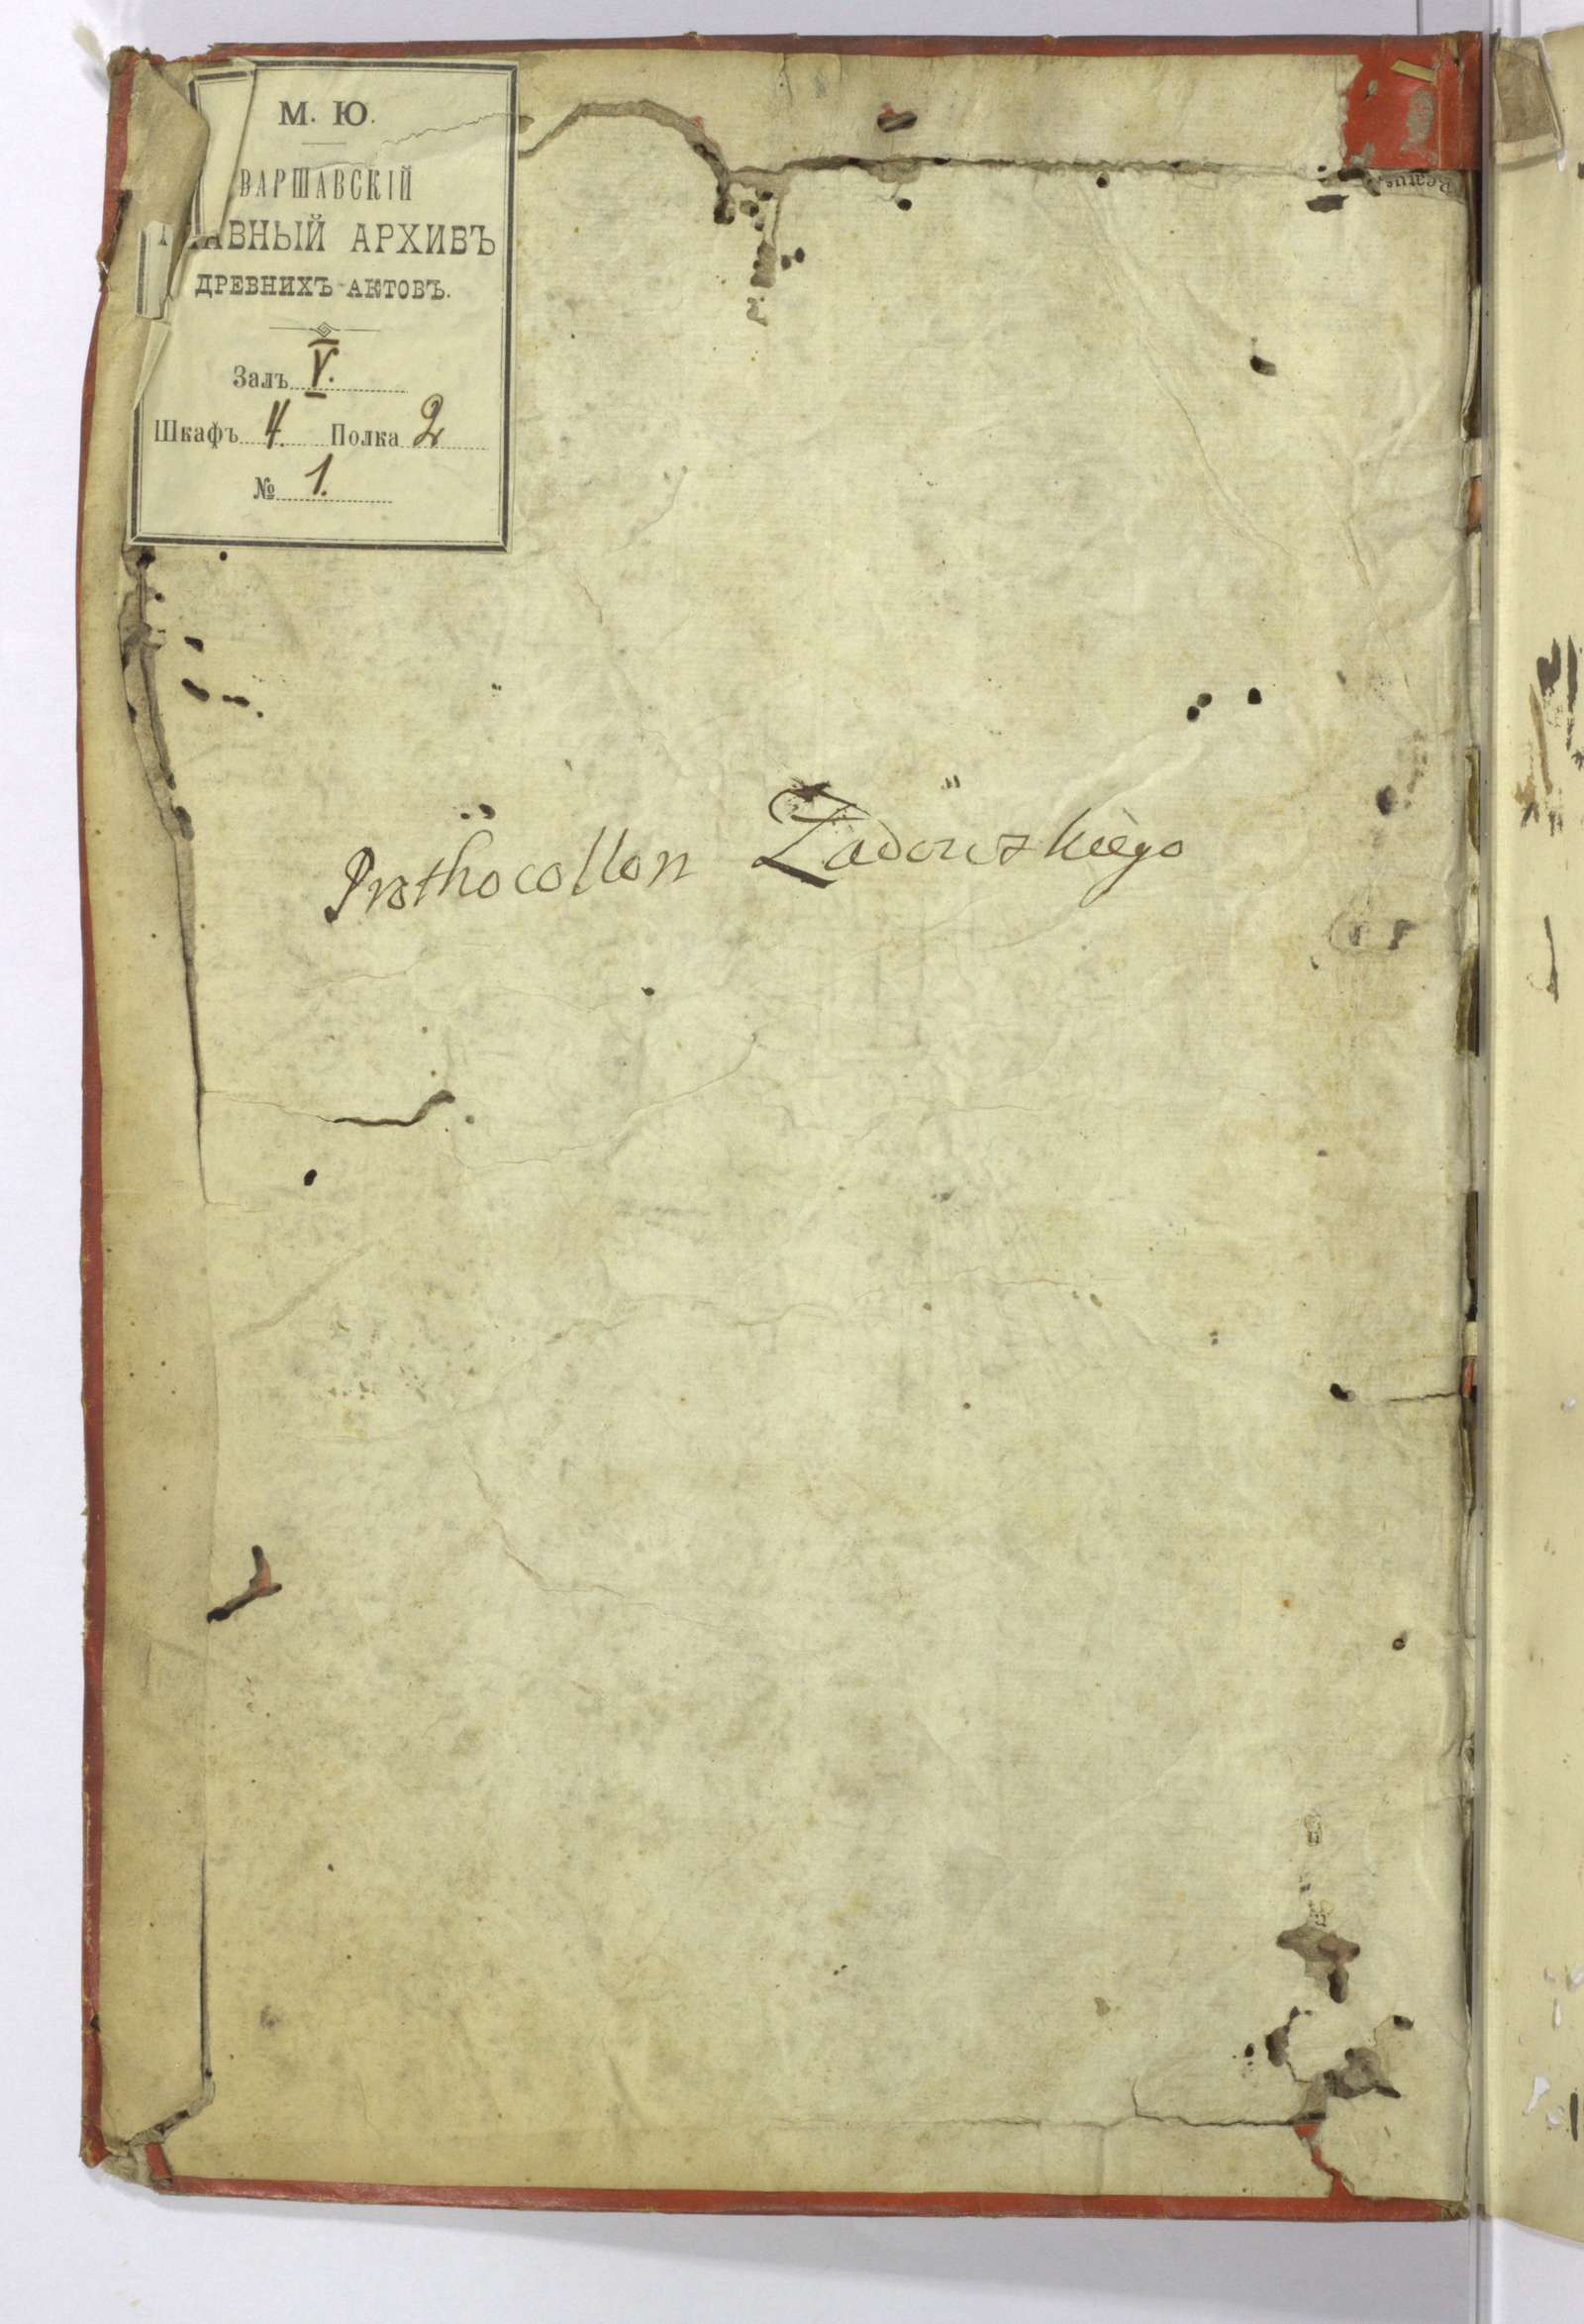 М. Ю.
ВАРШАВСКІЙ
ГЛАВНЫЙ АРХИВЪ
ДРЕВНИХЪ АКТОВЪ.
Залъ V.
Шкафъ 4. Полка 2
№ 1.
Prothocollon Zadorskiego